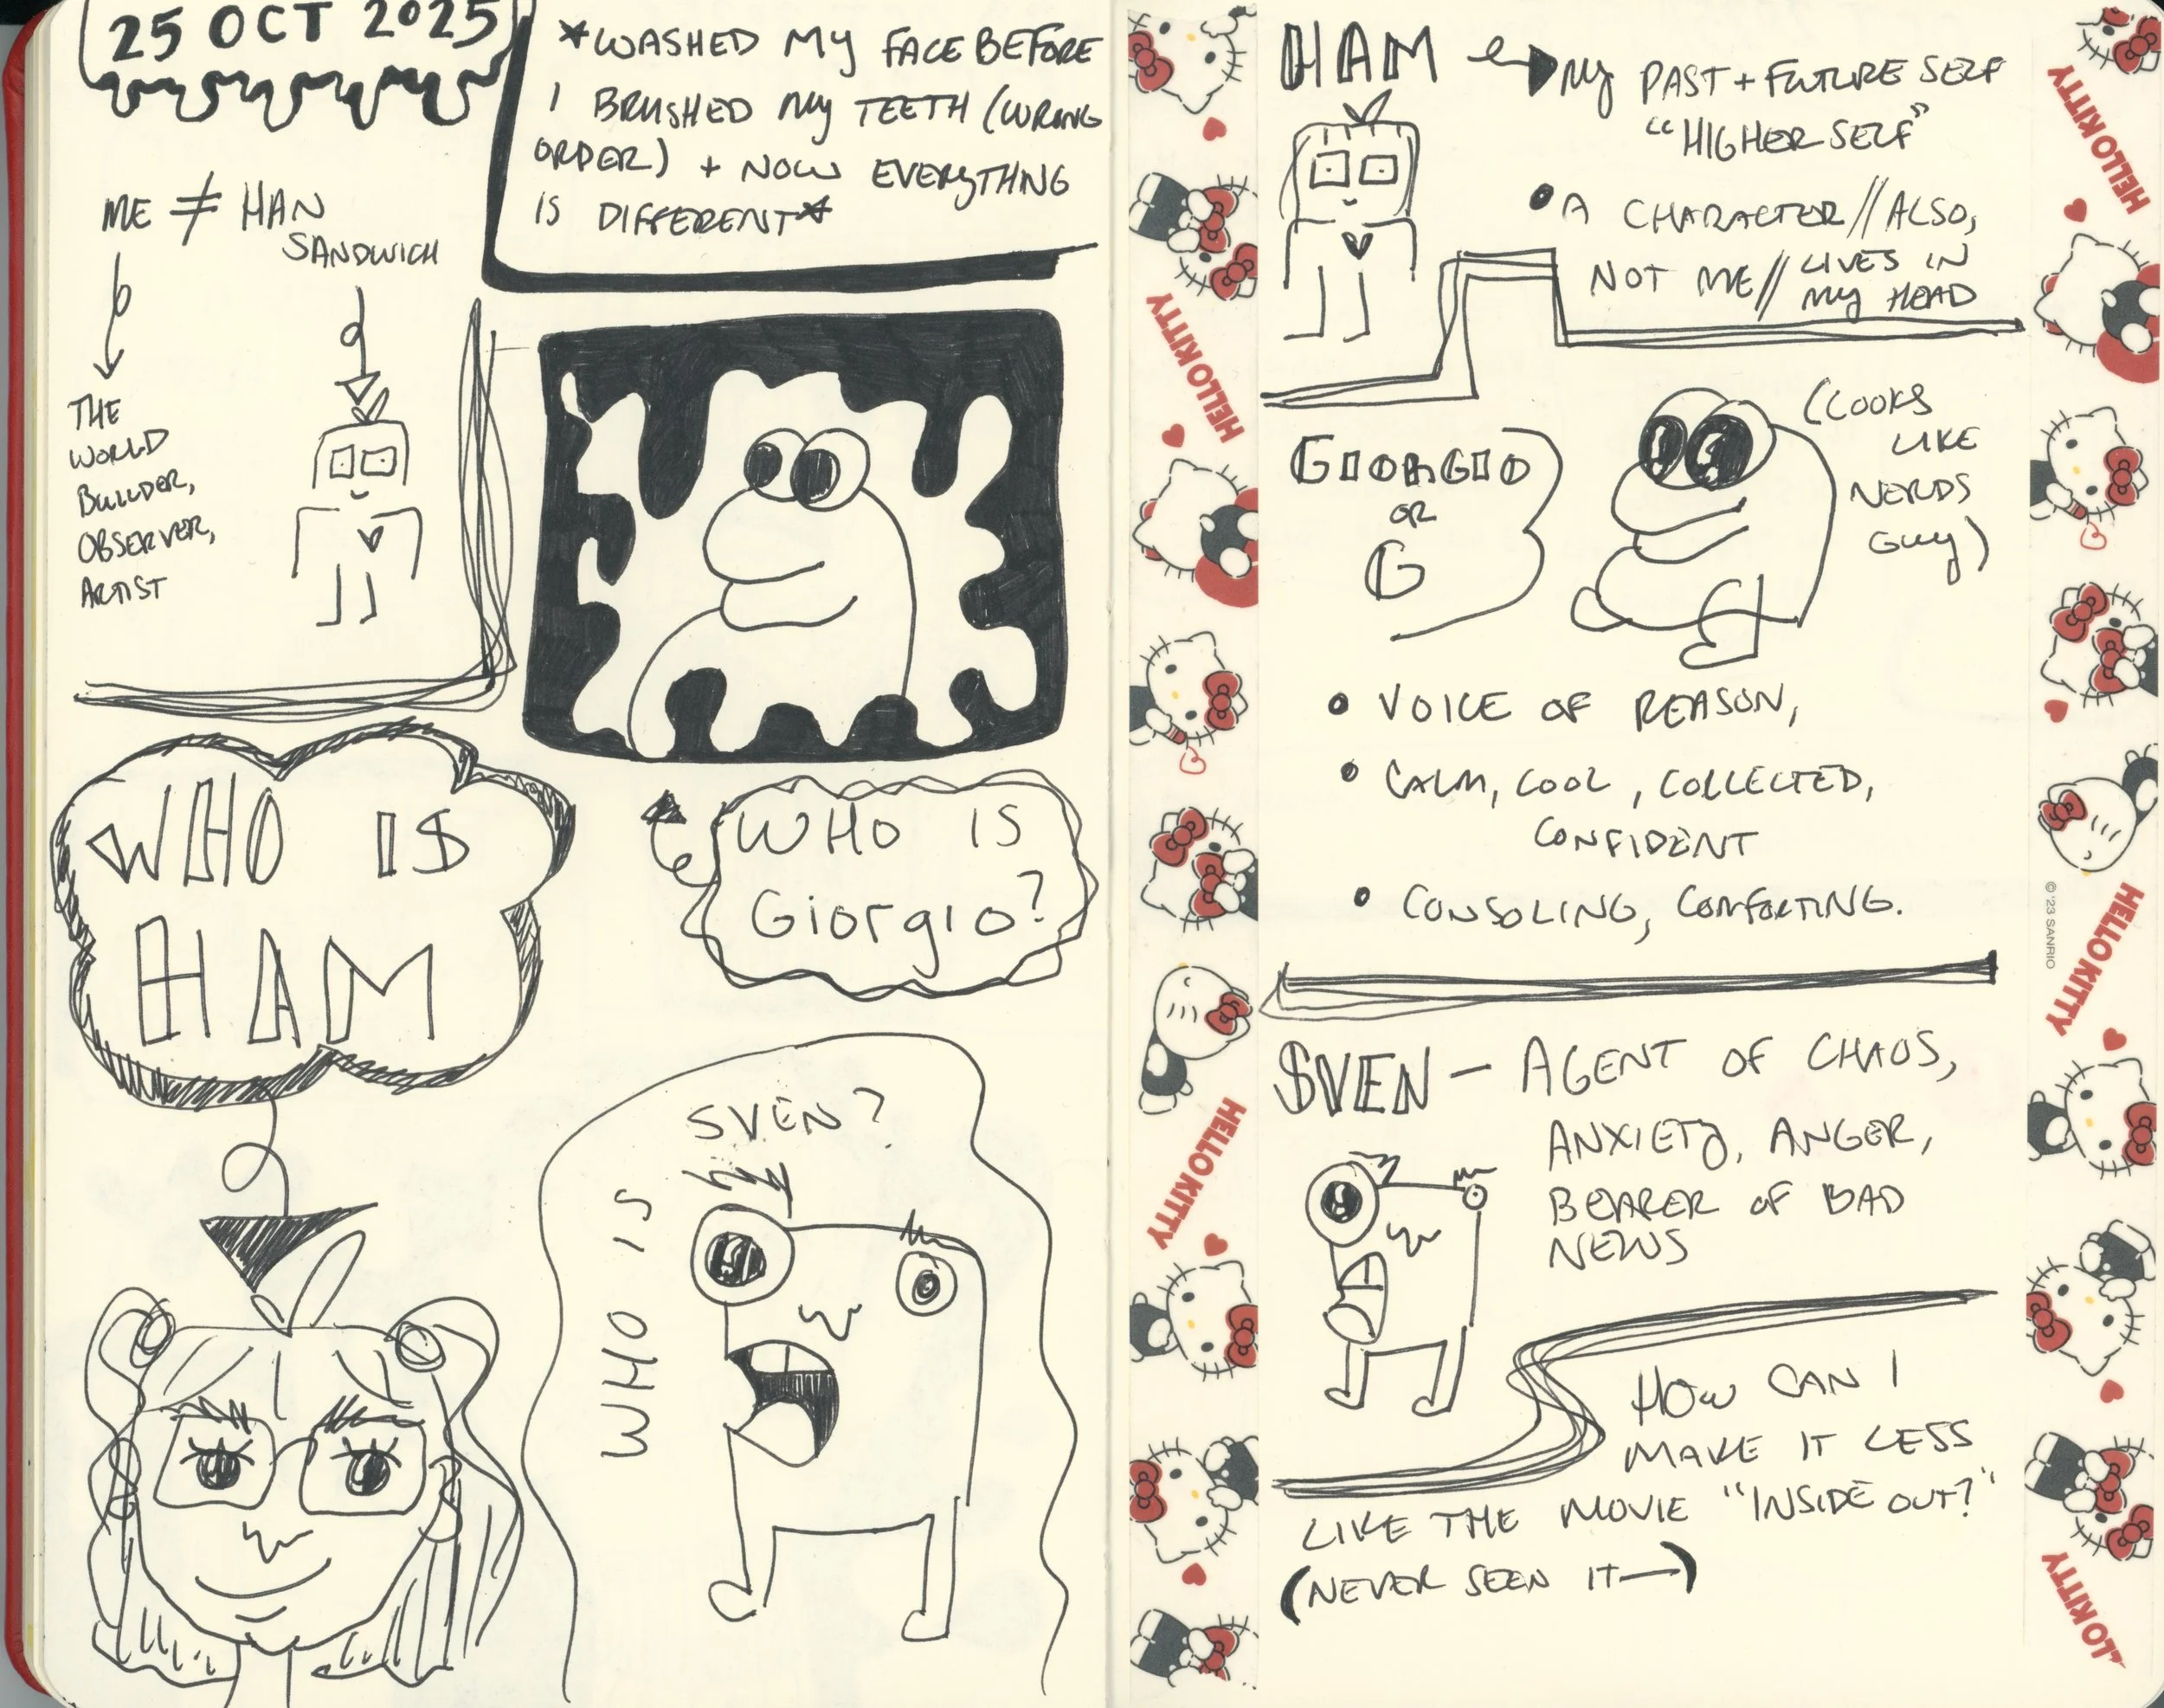 25 OCT 2025
*WASHED MY FACE BEFORE
I BRUSHED MY TEETH (WRONG
ORDER) + NOW EVERYTHING
IS DIFFERENT*
ME ≠ HAN
SANDWICH
THE
WORLD
BUILDER,
OBSERVER,
ARTIST
WHO IS
HAM
WHO IS
Giorgio?
WHO IS
SVEN?
HAM
MY PAST + FUTURE SELF
"HIGHER SELF"
• A CHARACTER // ALSO,
NOT ME // LIVES IN
MY HEAD
GIORGIO
OR
G
(LOOKS
LIKE
NERDS
GUY)
• VOICE OF REASON,
• CALM, COOL, COLLECTED,
CONFIDENT
• CONSOLING, COMFORTING.
SVEN – AGENT OF CHAOS,
ANXIETY, ANGER,
BEARER OF BAD
NEWS
HOW CAN I
MAKE IT LESS
LIKE THE MOVIE "INSIDE OUT?"
(NEVER SEEN IT—)
HELLO KITTY
HELLO KITTY
HELLO KITTY
HELLO KITTY
© '23 SANRIO
LO KITTY